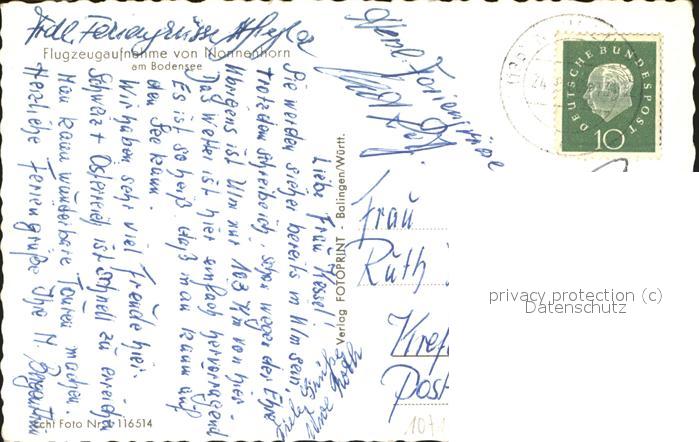 Frdl. Feriengrüsse
Flugzeugaufnahme von Nonnenhorn
am Bodensee
Liebe Frau Kessel!
Sie werden sicher bereits in Ulm sein,
trotzdem schreibe ich, schon wegen der
Morgens ist Ulm nur 103 km von hier.
Das Wetter ist hier einfach hervorragend
Es ist so heiß, daß man kaum auf
den See kann.
Wir haben sehr viel Freude hier.
Schweiz + Österreich ist schnell zu erreichen
Man kann wunderbare Touren machen.
Herzliche Feriengrüße Ihre H.
Viele Grüße
Verlag FOTOPRINT - Balingen/Württ.
Echt Foto Nr. 116514
DEUTSCHE BUNDESPOST
10
Frau
Ruth
Kref
Post
1071
privacy protection (c)
Datenschutz